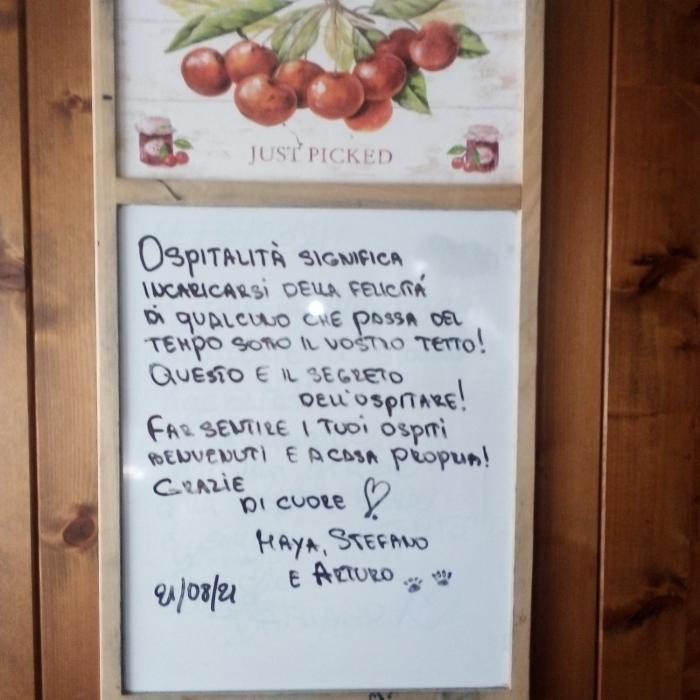 JUST PICKED
OSPITALITÀ SIGNIFICA
INCARICARSI DELLA FELICITÁ
DI QUALCUNO CHE PASSA DEL
TEMPO SOTTO IL VOSTRO TETTO!
QUESTO E IL SEGRETO
DELL'OSPITARE!
FAR SENTIRE I TUOI OSPITI
BENVENUTI E A CASA PROPRIA!
GRAZIE
DI CUORE
MAYA, STEFANO
E ARTURO
21/08/21